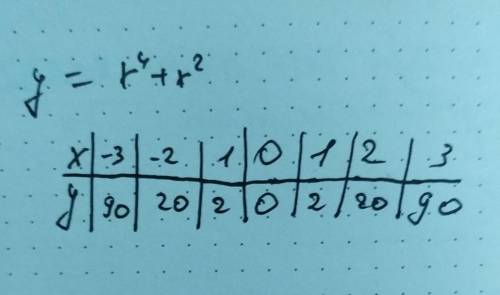 y = x⁴+x²
x | -3 | -2 | 1 | 0 | 1 | 2 | 3
y | 90 | 20 | 2 | 0 | 2 | 20 | 90